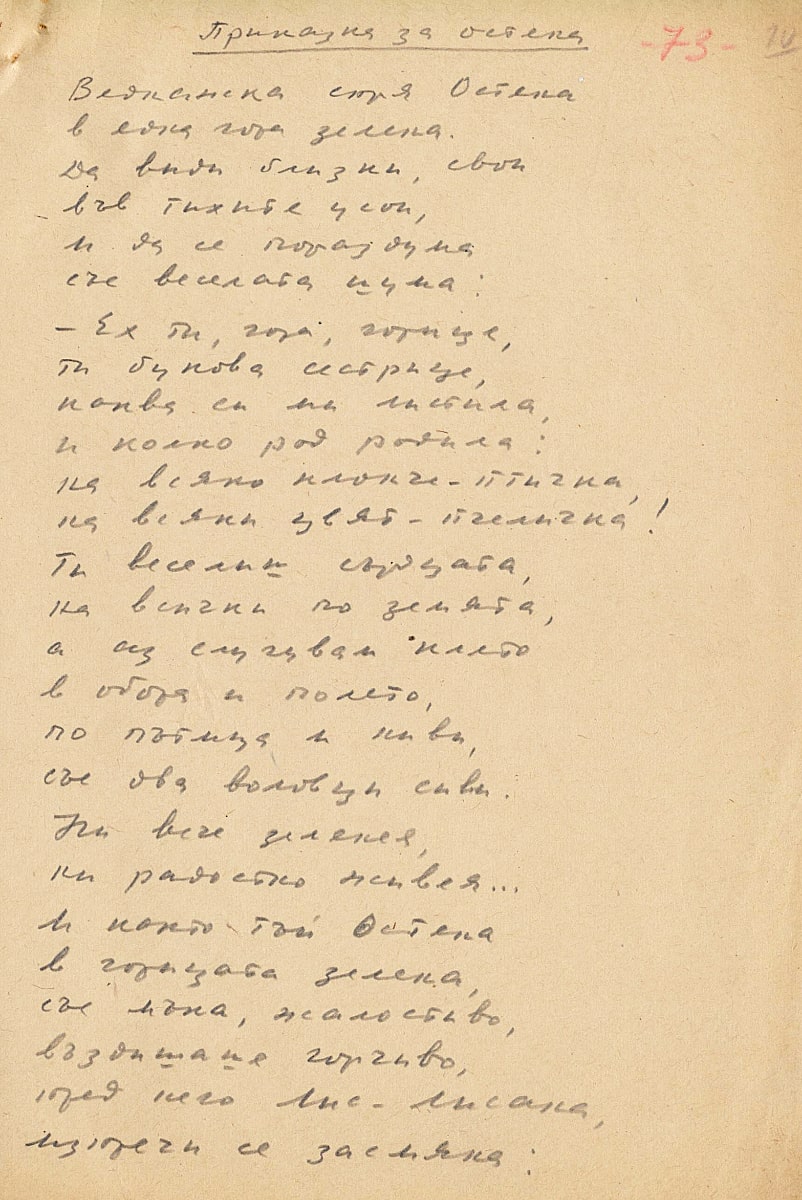 Приказка за остена -73- 10
Веднажка спря Остена
в една гора зелена.
Да види близки, свои
във тихите усои,
и да се пораздума
със веселата шума:
– Ех ти, гора, горице,
ти букова сестрице,
каква си ми листила,
и колко род родила:
на всяко клонче-птичка,
на всяки цвят-пчеличка!
Ти веселиш сърцата,
на всички по земята,
а аз слугувам клето
в обора и полето,
по пътища и ниви,
със два воловци сиви.
Ни вече зеленея,
ни радостно живея...
И както тъй Остена
в горицата зелена,
със мъка, жалостиво,
въздишаше горчиво,
пред него Лис-Лисана,
изпречи се засмяна: